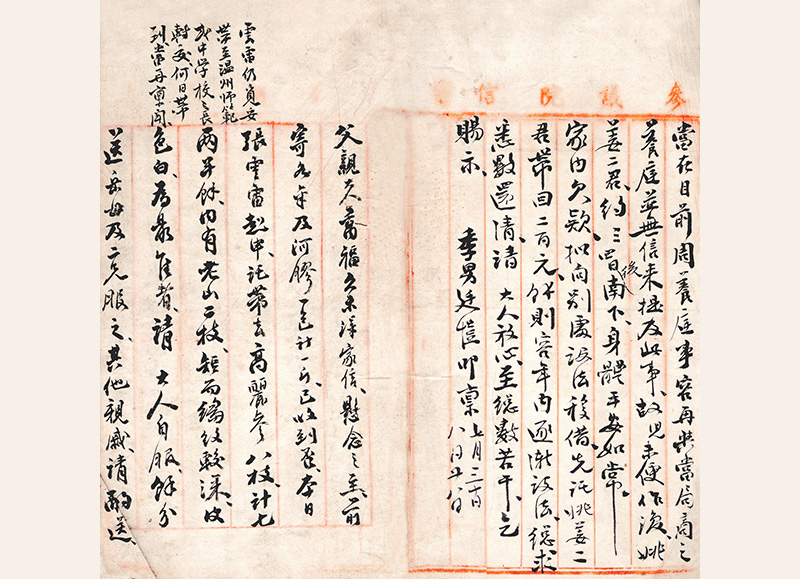 父親大人萬福久未得家信懸念之至前
寄及河膠一包計一斤已收到否本日
張雲雷起申託帶去高麗參八枝計七
兩半餘內有老山二枝短而綿紋較深皮
色白為最佳者請 大人自服餘分
送岳母及二兄服之其他親戚請酌送
雲雷仍須
帶至溫州師範
或中學校之長
轉交何日帶
到當再稟聞
參議院信
當在目前周養庭事容再與當局商之
養庭並無信來提及此事故兒未便作復姚
姜二君約三四日後南下身體平安如常
家內欠款擬向別處設法移借先託姚姜二
君帶回二百元餘則容年內逐漸設法總求
悉數還清請 大人放心至總數若干乞
賜示 季男廷愷叩稟